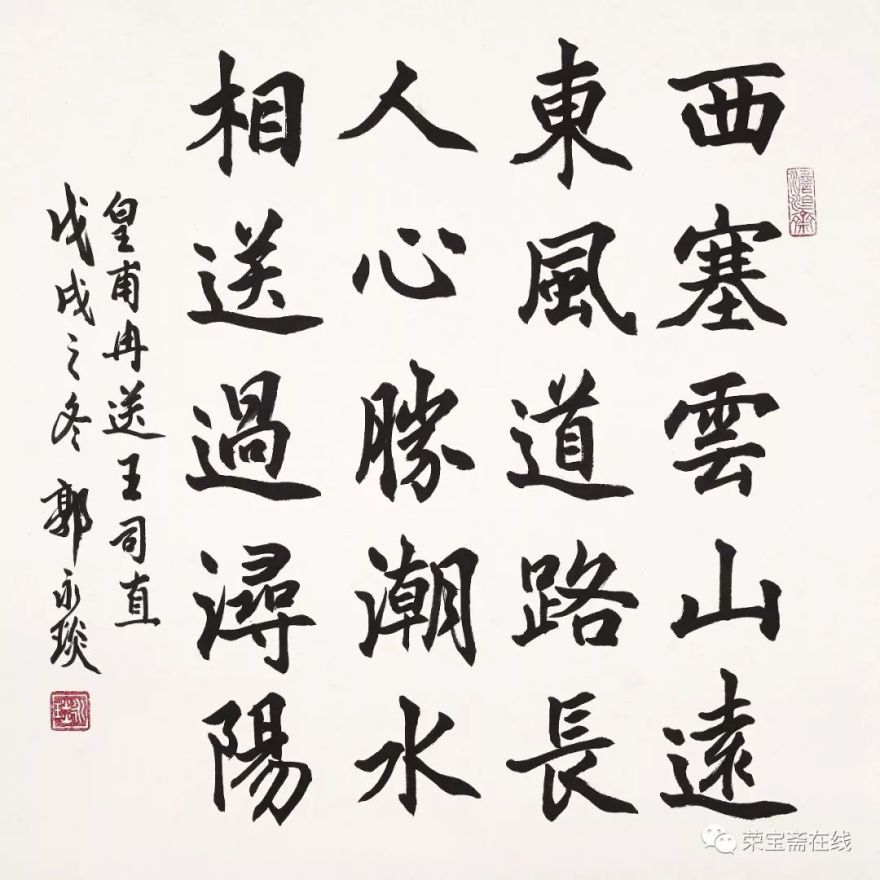 西塞雲山遠
東風道路長
人心勝潮水
相送過潯陽
皇甫冉送王司直
戊戌之冬 郭永琰
荣宝斋在线